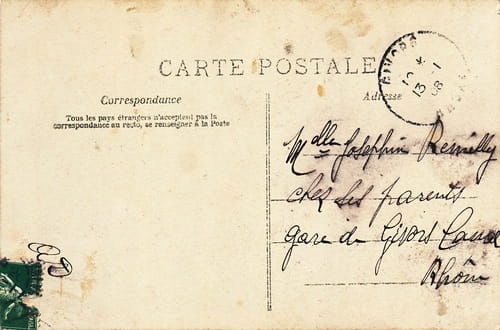 CARTE POSTALE
Correspondance
Tous les pays étrangers n'acceptent pas la
correspondance au recto, se renseigner à la Poste
Adresse
GIVORS
13-1
08
Mdlle Joséphin Remilly
chez ses parents
gare de Givors Canal
Rhône